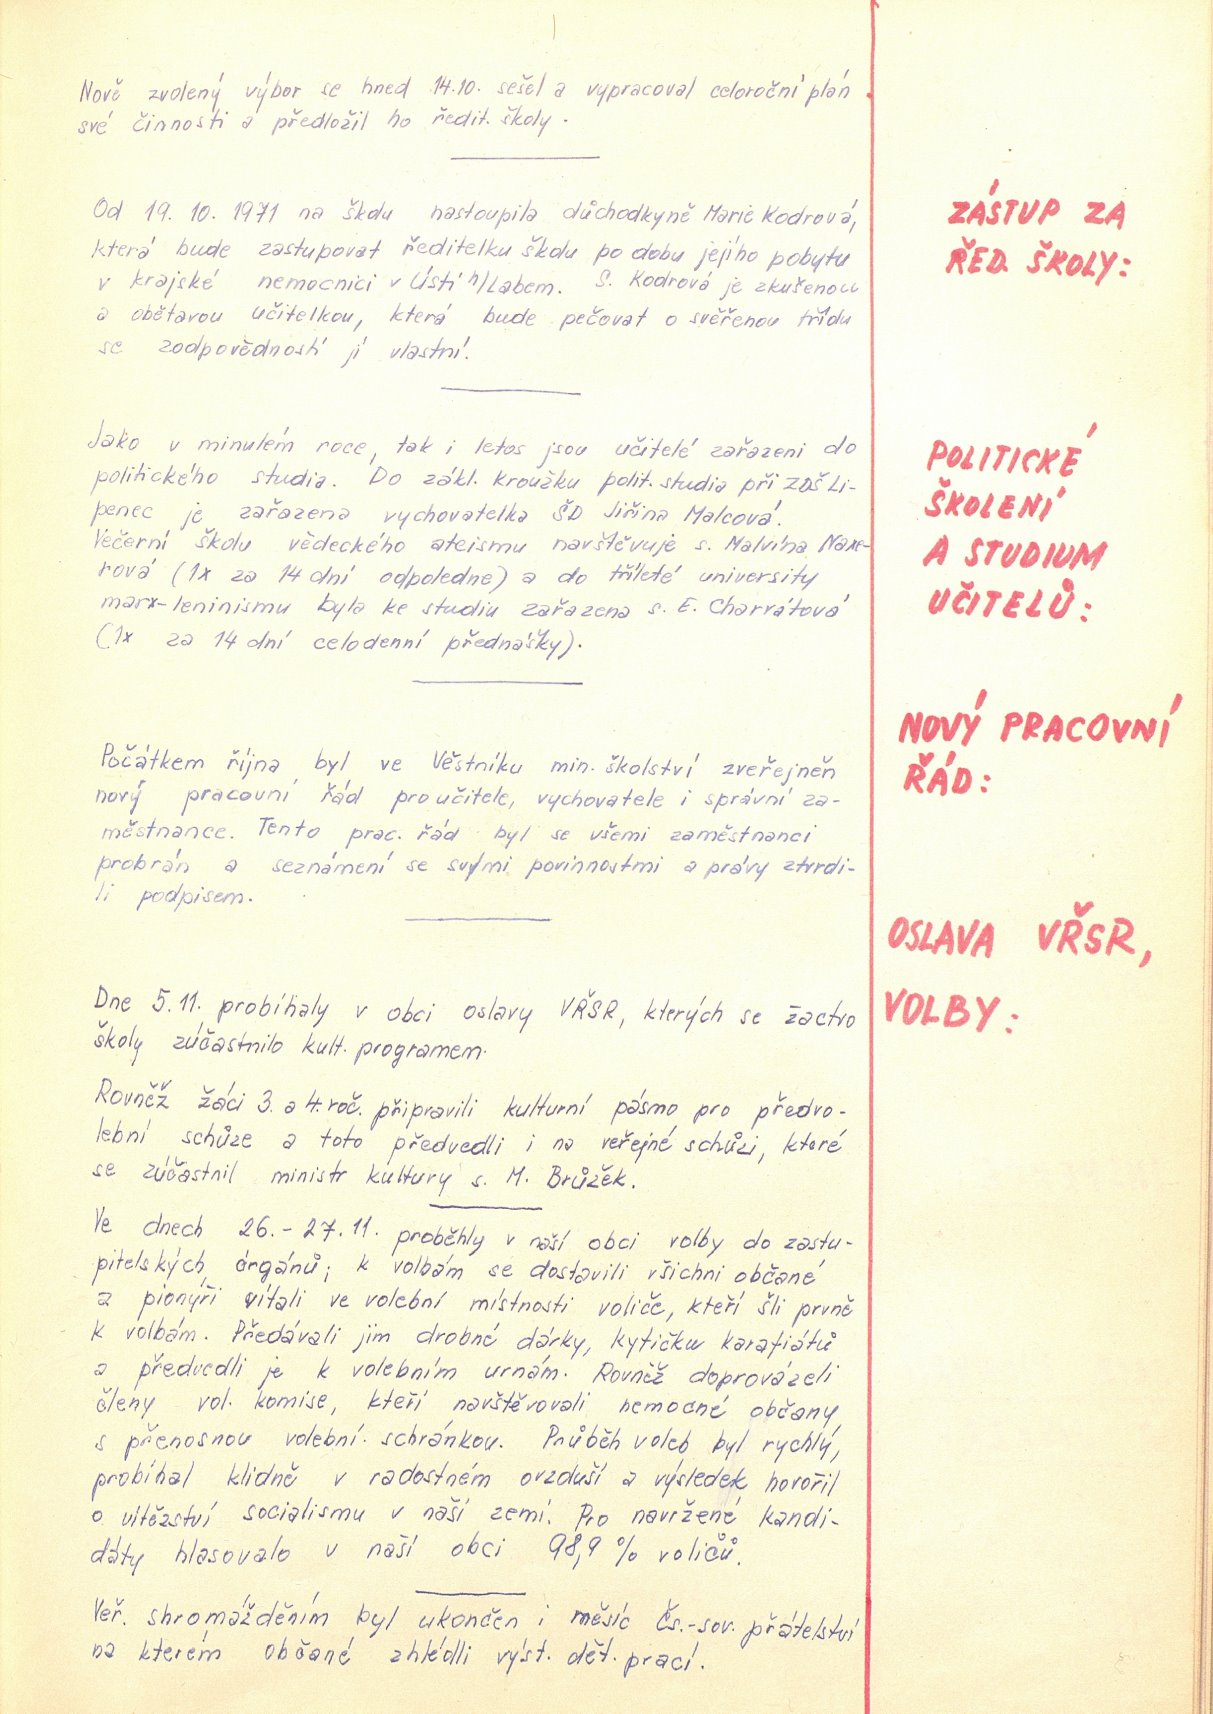 Nově zvolený výbor se hned 14.10. sešel a vypracoval celoroční plán
své činnosti a předložil ho ředit. školy.
ZÁSTUP ZA
ŘED. ŠKOLY:
Od 19. 10. 1971 na školu nastoupila důchodkyně Marie Kodrová,
která bude zastupovat ředitelku školu po dobu jejího pobytu
v krajské nemocnici v Ústí n/Labem. S. Kodrová je zkušenou
a obětavou učitelkou, která bude pečovat o svěřenou třídu
se zodpovědností jí vlastní.
POLITICKÉ
ŠKOLENÍ
A STUDIUM
UČITELŮ:
Jako v minulém roce, tak i letos jsou učitelé zařazeni do
politického studia. Do zákl. kroužku polit. studia při ZDŠ Li-
penec je zařazena vychovatelka ŠD Jiřina Malcová.
Večerní školu vědeckého ateismu navštěvuje s. Malvína Naxe-
rová (1x za 14 dní odpoledne) a do tříleté university
marx-leninismu byla ke studiu zařazena s. E. Charvátová
(1x za 14 dní celodenní přednášky).
NOVÝ PRACOVNÍ
ŘÁD:
Počátkem října byl ve Věstníku min. školství zveřejněn
nový pracovní řád pro učitele, vychovatele i správní za-
městnance. Tento prac. řád byl se všemi zaměstnanci
probrán a seznámení se svými povinnostmi a právy ztvrdi-
li podpisem.
OSLAVA VŘSR,
VOLBY:
Dne 5.11. probíhaly v obci oslavy VŘSR, kterých se žactvo
školy zúčastnilo kult. programem.
Rovněž žáci 3. a 4. roč. připravili kulturní pásmo pro předvo-
lební schůze a toto předvedli i na veřejné schůzi, které
se zúčastnil ministr kultury s. M. Brůžek.
Ve dnech 26.-27.11. proběhly v naší obci volby do zastu-
pitelských orgánů; k volbám se dostavili všichni občané
a pionýři vítali ve volební místnosti voliče, kteří šli prvně
k volbám. Předávali jim drobné dárky, kytičku karafiátů
a předvedli je k volebním urnám. Rovněž doprovázeli
členy vol. komise, kteří navštěvovali nemocné občany
s přenosnou volební schránkou. Průběh voleb byl rychlý,
probíhal klidně v radostném ovzduší a výsledek hovořil
o vítězství socialismu v naší zemi. Pro navržené kandi-
dáty hlasovalo v naší obci 98,9 % voličů.
Veř. shromážděním byl ukončen i měsíc Čs.-sov. přátelství
na kterém občané zhlédli výst. dět. prací.